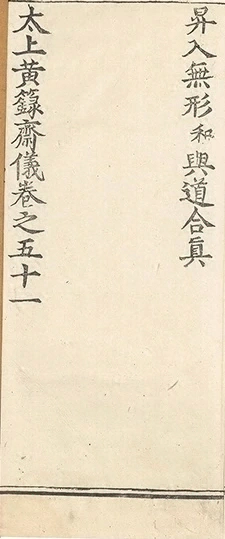 昇入無形和與道合真
太上黄籙齋儀卷之五十一